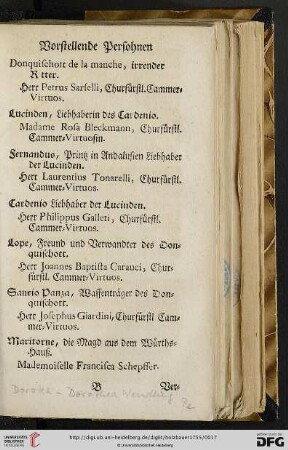 Vorstellende Persohnen
Donquischott de la manche, irrender
Ritter.
Herr Petrus Sarselli, Churfürstl. Cammer-
Virtuos.
Lucinden, Liebhaberin des Cardenio.
Madame Rosa Bleckmann, Churfürstl.
Cammer-Virtuosin.
Fernandus, Printz in Andalusien Liebhaber
der Lucinden.
Herr Laurentius Tonarelli, Churfürstl.
Cammer-Virtuos.
Cardenio Liebhaber der Lucinden.
Herr Philippus Galleti, Churfürstl.
Cammer-Virtuos.
Lope, Freund und Verwandter des Don-
quischott.
Herr Joannes Baptista Carauci, Chur-
fürstl. Cammer-Virtuos.
Sancio Panza, Waffenträger des Don-
quischott.
Herr Josephus Giardini, Churfürstl Cam-
mer-Virtuos.
Maritorne, die Magd aus dem Würths-
Hauß.
Mademoiselle Francisca Schepffer.
B Ver-
Dorothea
http://digi.ub.uni-heidelberg.de/diglit/holzbauer1755/0017
© Universitätsbibliothek Heidelberg
UNIVERSITÄTS-
BIBLIOTHEK
HEIDELBERG
gefördert durch die
DFG